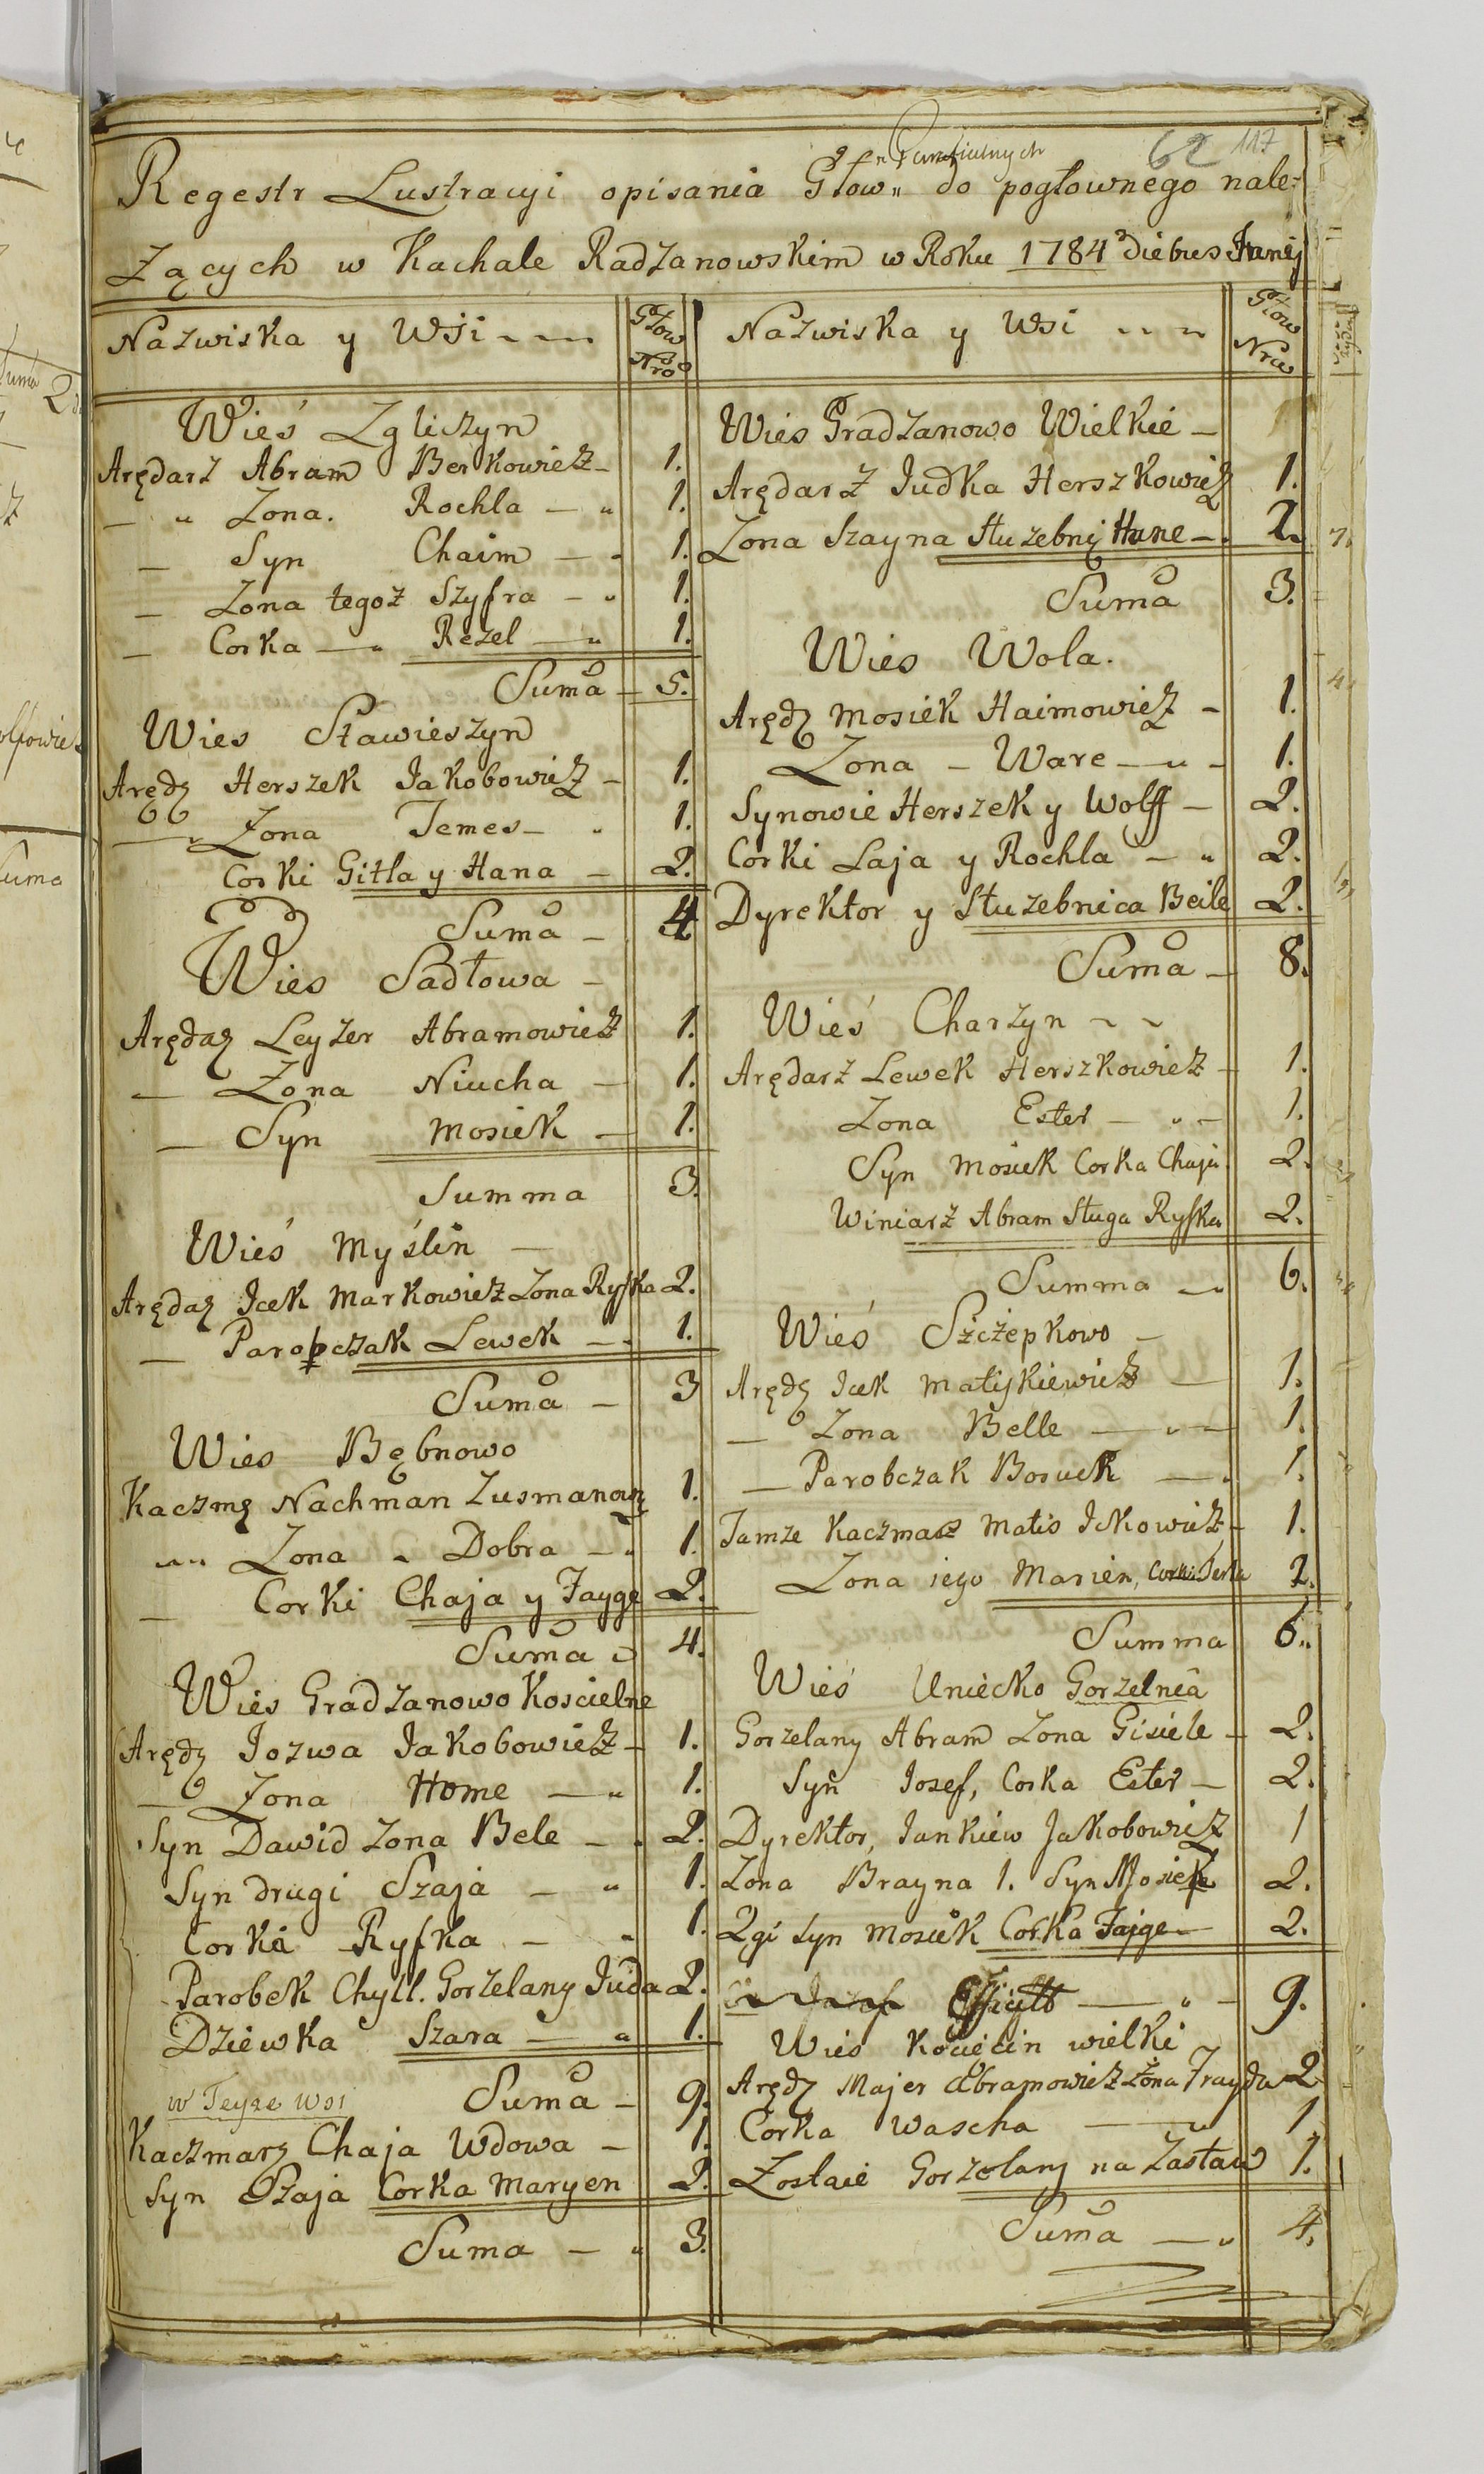 62 117
Regestr Lustracyi opisania Głow" do pogłownego nale-
żących w Kachale Radzanowskim w Roku 1784 Diebus Junij
Nazwiska y Wsi
Głow Nro
Wieś Zgliczyn
Arędarz Abram Berkowicz 1.
" Zona. Rochla " 1.
Syn Chaim 1.
Zona tegoz Szyfra " 1.
Corka " Rezel " 1.
Suma 5.
Wies Sławieszyn
Arędz Herszek Jakobowicz 1.
Zona Temes 1.
Corki Gitla y Hana 2.
Suma 4
Wies Sadłowa
Arędaz Leyzer Abramowicz 1.
Zona Niucha 1.
Syn Mosiek 1.
Summa 3.
Wieś Myślin
Arędaz Icek Markowicz Zona Ryfka 2.
Paropczak Lewek 1.
Suma 3
Wies Bębnowo
Kaczmę Nachman Zusmanowi 1.
Zona Dobra 1.
Corki Chaja y Fayge 2.
Suma 4.
Wies Gradzanowo Koscielne
Arędz Jozwa Jakobowicz 1.
Zona Home " 1.
Syn Dawid Zona Bele 2.
Syn drugi Szaja " 1.
Corka Ryfka 1.
Parobek Chyll. Gorzelany Juda 2.
Dziewka Szara " 1.
Suma 9.
w Teyze Wsi
Kaczmarz Chaja Wdowa 1.
Syn Szaja Corka Maryen 2.
Suma 3.
Nazwiska y Wsi
Głow Nro
Wies Gradzanowo Wielkie
Arędarz Judka Herszkowicz 1.
Zona Szayna Służebnę Hane 2.
Suma 3.
Wies Wola.
Arędz Mosiek Haimowicz 1.
Zona Ware 1.
Synowie Herszek y Wolff 2.
Corki Laja y Rochla " 2.
Dyrektor y Służebnica Beile 2.
Suma 8.
Wieś Charzyn
Arędarz Lewek Herszkowicz 1.
Zona Ester 1.
Syn Mosiek Corka Chaja 2.
Winiarz Abram Sługa Ryfka 2.
Summa 6.
Wieś Szczepkowo
Arędz Icek Matyskiewicz 1.
Zona Belle 1.
Parobczak Boruch 1.
Tamze Kaczmarz Matis Ickowicz 1.
Zona iego Marien, Corki Perla 2.
Summa 6.
Wieś Uniecko Gorzelnia
Gorzelany Abram Zona Gisiele 2.
Syn Josef, Corka Ester 2.
Dyrektor, Jankiew Jakobowicz 1
Zona Brayna 1. Syn Mosiek 2.
2gi Syn Mosiek Corka Fajge 2.
9.
Wies Kocięcin wielki
Arędz Majer Abramowicz Zona Frayda 2
Corka Wascha 1
Zostaie Gorzelany na Zastaw 1.
Suma 4.